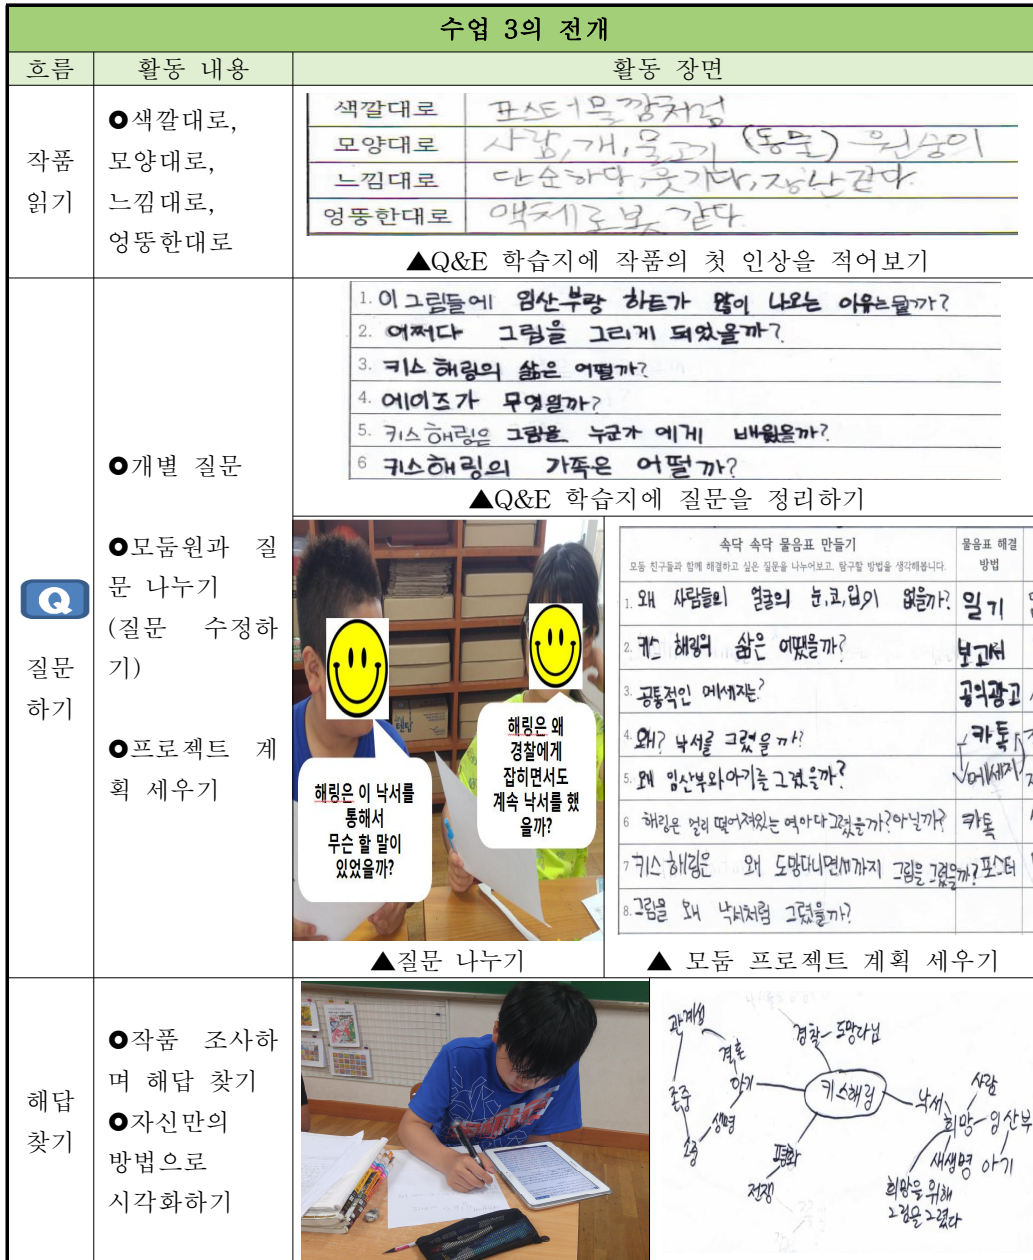 수업 3의 전개
흐름 활동 내용 활동 장면
작품
읽기
●색깔대로,
모양대로,
느낌대로,
엉뚱한대로
색깔대로 포스터물감처럼
모양대로 사람,개,물고기 (동물) 원숭이
느낌대로 단순하다,웃기다,장난같다.
엉뚱한대로 액체로봇 같다.
▲Q&E 학습지에 작품의 첫 인상을 적어보기
Q
질문
하기
●개별 질문
●모둠원과 질
문 나누기
(질문 수정하
기)
●프로젝트 계
획 세우기
1. 이 그림들에 임산부랑 하트가 많이 나오는 이유는뭘까?
2. 어쩌다 그림을 그리게 되었을까?
3. 키스해링의 삶은 어떨까?
4. 에이즈가 무엇일까?
5. 키스해링은 그림을 누군가 에게 배웠을까?
6 키스해링의 가족은 어떨까?
▲Q&E 학습지에 질문을 정리하기
해링은 이 낙서를
통해서
무슨 할 말이
있었을까?
해링은 왜
경찰에게
잡히면서도
계속 낙서를 했
을까?
▲질문 나누기
속닥 속닥 물음표 만들기
모둠 친구들과 함께 해결하고 싶은 질문을 나누어보고, 탐구할 방법을 생각해봅니다.
물음표 해결
방법
1. 왜 사람들의 얼굴의 눈,코,입이 없을까? 일기
2. 키스 해링의 삶은 어땠을까? 보고서
3. 공통적인 메세지는? 공익광고
4. 왜? 낙서를 그렸을까? 카톡
5. 왜 임산부와아기를 그렸을까? 메세지
6 해링은 멀리 떨어져있는 여아다그렸을까?아닐까? 카톡
7 키스해링은 왜 도망다니면서까지 그림을 그렸을까? 포스터
8. 그림을 왜 낙서처럼 그렸을까?
▲ 모둠 프로젝트 계획 세우기
해답
찾기
●작품 조사하
며 해답 찾기
●자신만의
방법으로
시각화하기
키스해링
경찰 도망다님
아기
결혼
관계성
존중
생명
평화
전쟁
낙서
희망
사람
임산부
새생명
아기
희망을 위해
그림을 그렸다